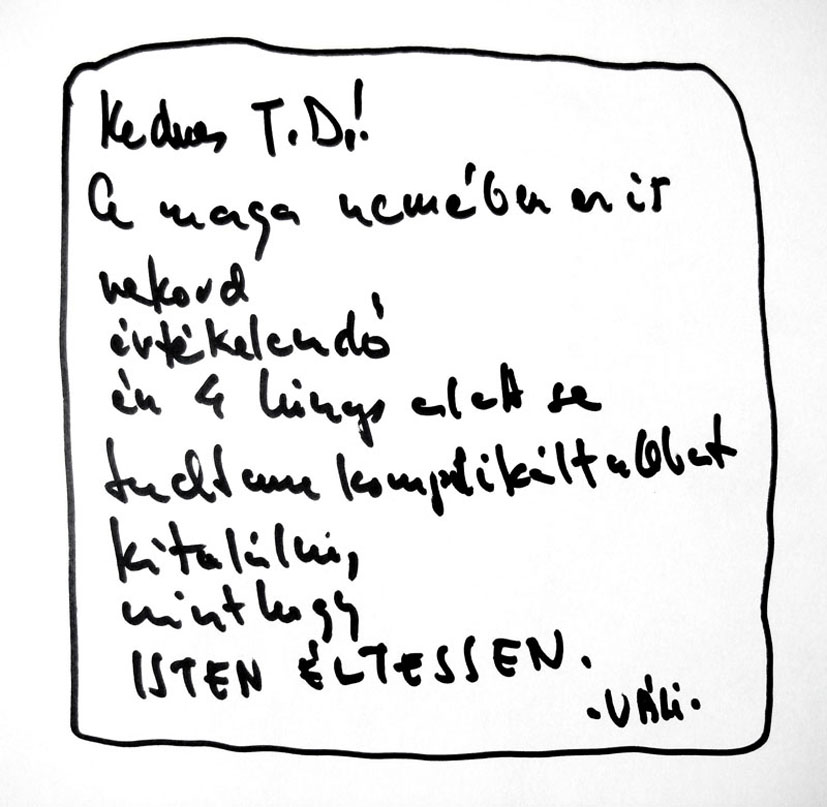 Kedves T.D.!
A maga nemében ez is
rekord
értékelendő
én 4 hónap alatt se
tudtam komplikáltabbat
kitalálni,
minthogy
ISTEN ÉLTESSEN.
·VÁLI·